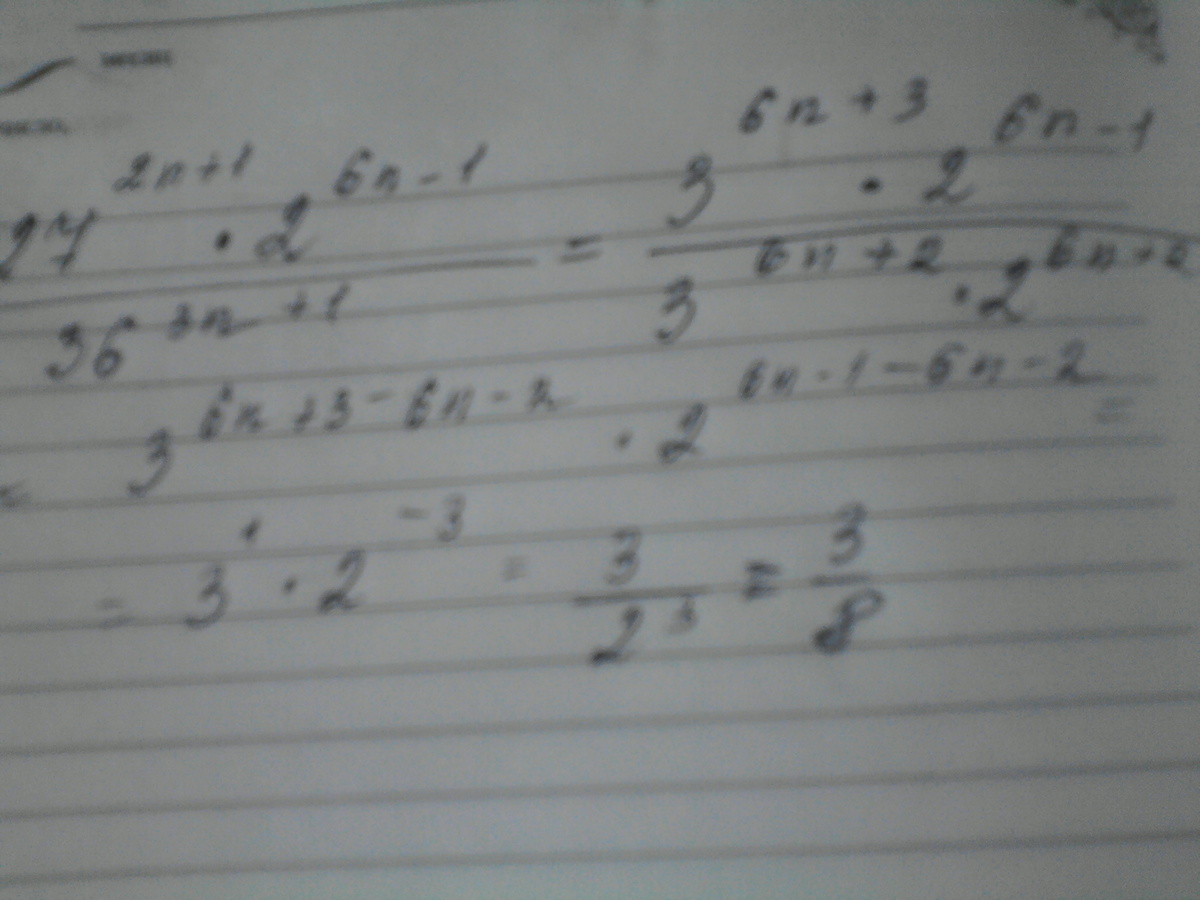 месяц
число,
27^{2n+1} · 2^{6n-1} / 36^{3n+1} = 3^{6n+3} · 2^{6n-1} / 3^{6n+2} · 2^{6n+2}
= 3^{6n+3-6n-2} · 2^{6n-1-6n-2} =
= 3^{1} · 2^{-3} = 3 / 2^{3} = 3 / 8